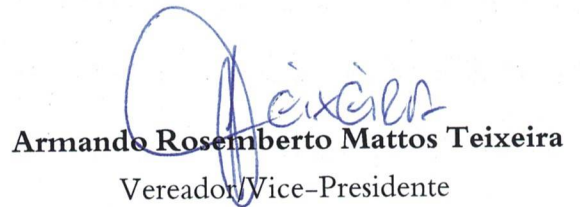 Teixeira
Armando Rosemberto Mattos Teixeira
Vereador/Vice-Presidente